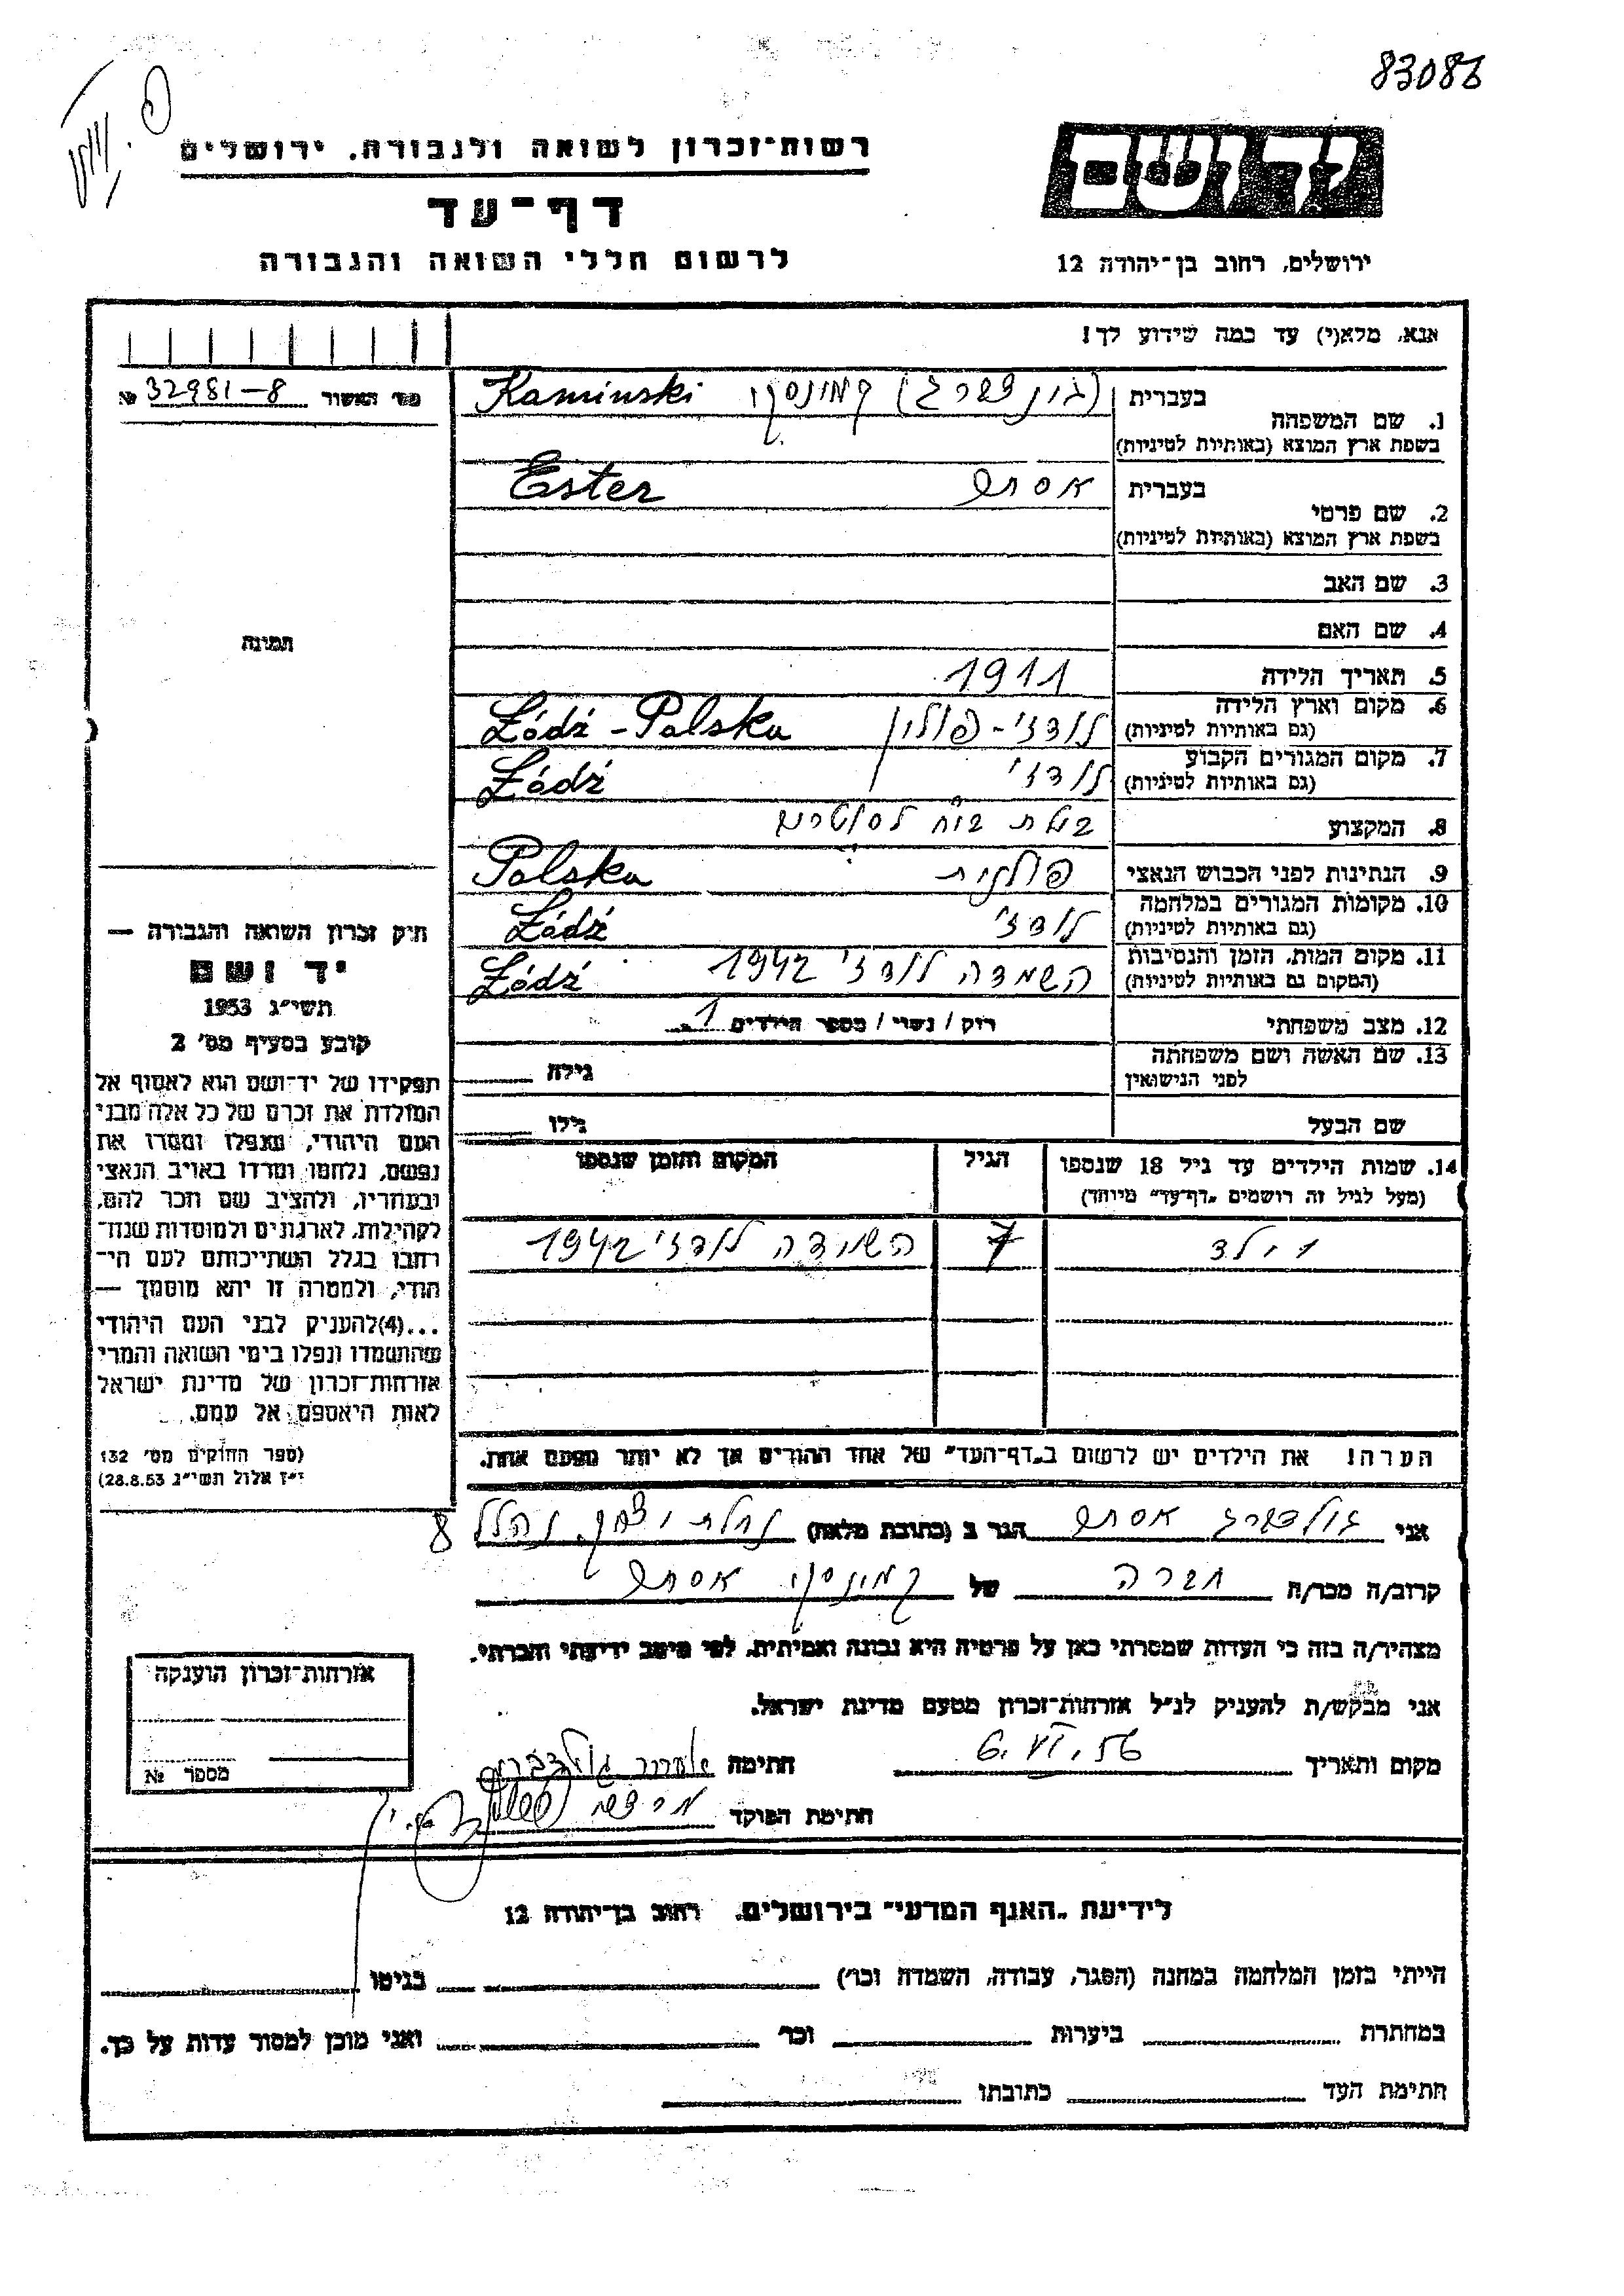 83086
רשות־זכרון לשואה ולגבורה, ירושלים
דף־עד
לרשום חללי השואה והגבורה
יד ושם
ירושלים, רחוב בן־יהודה 12
אנא, מלא(י) עד כמה שידוע לך!
מס׳ האשור 32981-8 №
תמונה
1. שם המשפחה
בעברית קמינסקי Kaminski
בשפת ארץ המוצא (באותיות לטיניות)
2. שם פרטי
בעברית אסתר Ester
בשפת ארץ המוצא (באותיות לטיניות)
3. שם האב
4. שם האם
5. תאריך הלידה 1911
6. מקום וארץ הלידה לודז׳ - פולין Łódź - Polska
(גם באותיות לטיניות)
7. מקום המגורים הקבוע לודז׳ Łódź
(גם באותיות לטיניות)
8. המקצוע בעלת
9. הנתינות לפני הכבוש הנאצי פולנית Polska
10. מקומות המגורים במלחמה לודז׳ Łódź
(גם באותיות לטיניות)
11. מקום המות, הזמן והנסיבות השמדה לודז׳ 1942 Łódź
(המקום גם באותיות לטיניות)
12. מצב משפחתי רוק / נשוי / מספר הילדים 1
13. שם האשה ושם משפחתה גילה
לפני הנישואין
שם הבעל גילו
14. שמות הילדים עד גיל 18 שנספו הגיל המקום והזמן שנספו
(מעל לגיל זה רושמים „דף־עד" מיוחד)
1 ילד 7 השמדה לודז׳ 1942
הערה! את הילדים יש לרשום ב„דף־העד" של אחד ההורים אך לא יותר מפעם אחת.
תיק זכרון השואה והגבורה —
יד ושם
תשי״ג 1953
קובע בסעיף מס׳ 2
תפקידו של יד־ושם הוא לאסוף אל
המולדת את זכרם של כל אלה מבני
העם היהודי, שנפלו ומסרו את
נפשם, נלחמו ומרדו באויב הנאצי
ובעוזריו, ולהציב שם וזכר להם,
לקהילות, לארגונים ולמוסדות שנח־
רבו בגלל השתייכותם לעם הי־
הודי, ולמטרה זו יהא מוסמך —
...(4)להעניק לבני העם היהודי
שהושמדו ונפלו בימי השואה והמרי
אזרחות־זכרון של מדינת ישראל
לאות היאספם אל עמם.
(ספר החוקים מס׳ 132
י״ז אלול תשי״ג 28.8.53)
אני גולדברג אסתר הגר ב (כתובת מלאה) נחלת יצחק, נהלל 8
קרוב/ה מכר/ה חברה של קמינסקי אסתר
מצהיר/ה בזה כי העדות שמסרתי כאן על פרטיה היא נכונה ואמיתית, לפי מיטב ידיעתי והכרתי.
אני מבקש/ת להעניק לנ״ל אזרחות־זכרון מטעם מדינת ישראל.
מקום ותאריך 6.VI.56 חתימה אסתר גולדברג
חתימת הפוקד
אזרחות־זכרון הוענקה
מספר №
לידיעת „האגף המדעי" בירושלים, רחוב בן־יהודה 12
הייתי בזמן המלחמה במחנה (הסגר, עבודה, השמדה וכו׳) בגיטו
במחתרת ביערות וכו׳ ואני מוכן למסור עדות על כך.
חתימת העד כתובתו